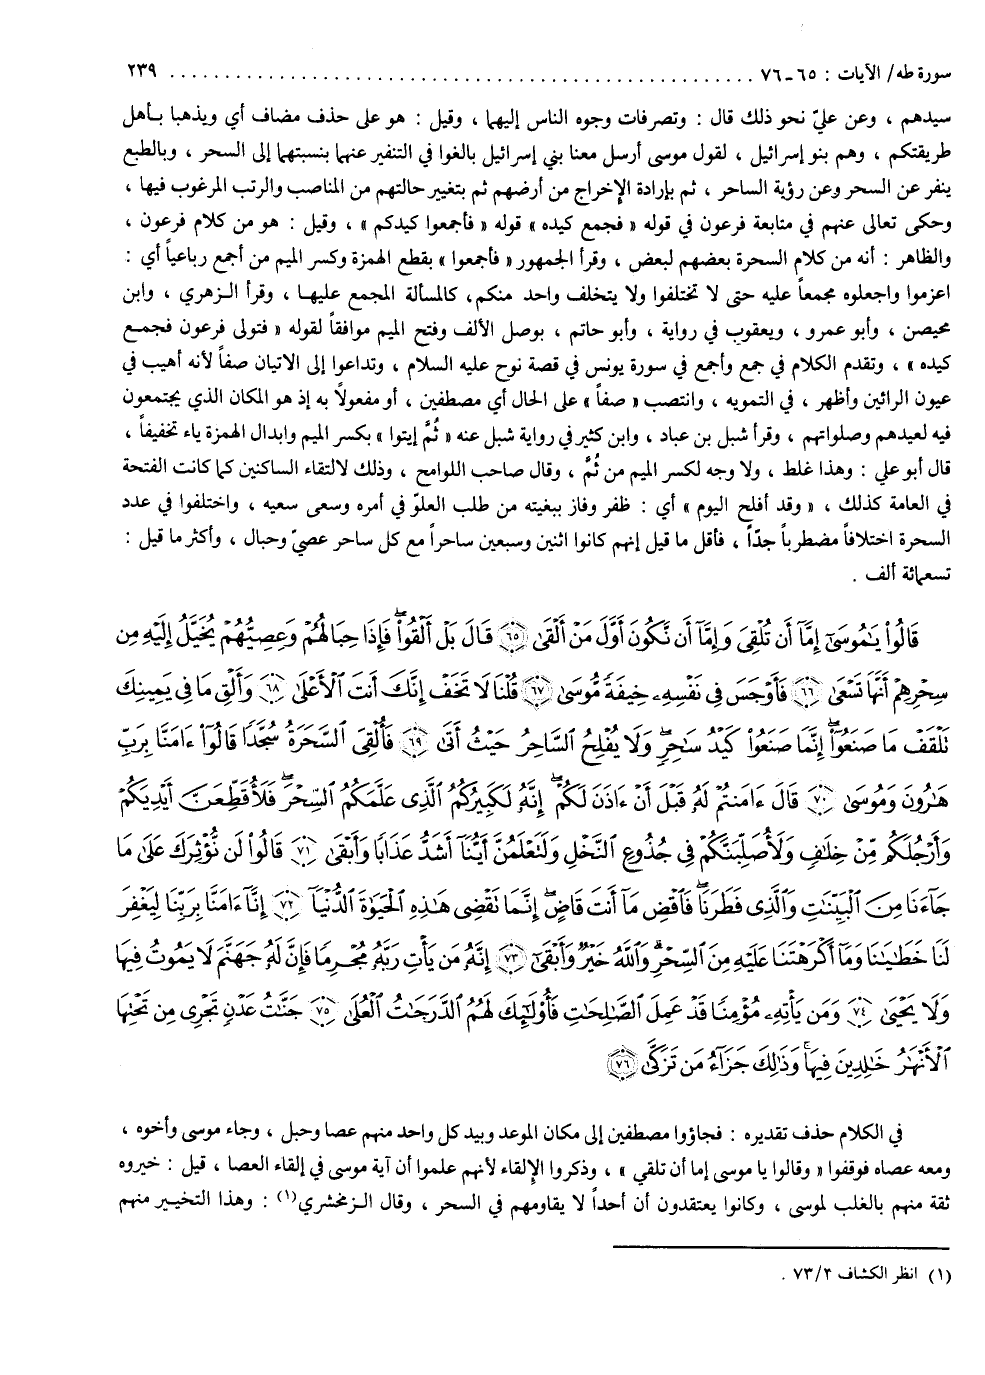 سورة طه/ الآيات : ٦٥ـ٧٦ ........................................................ ٢٣٩
سيدهم ، وعن عليّ نحو ذلك قال : وتصرفات وجوه الناس إليهما ، وقيل : هو على حذف مضاف أي ويذهبا بـأهل
طريقتكم ، وهم بنو إسرائيل ، لقول موسى أرسل معنا بني إسرائيل بالغوا في التنفير عنهما بنسبتهما إلى السحر ، وبالطبع
ينفر عن السحر وعن رؤية الساحر ، ثم بإرادة الإخراج من أرضهم ثم بتغيير حالتهم من المناصب والرتب المرغوب فيها ،
وحكى تعالى عنهم في متابعة فرعون في قوله « فجمع كيده » قوله « فأجمعوا كيدكم » ، وقيل : هو من كلام فرعون ،
والظاهر : أنه من كلام السحرة بعضهم لبعض ، وقرأ الجمهور « فأجمعوا » بقطع الهمزة وكسر الميم من أجمع رباعياً أي :
اعزموا واجعلوه مجمعاً عليه حتى لا تختلفوا ولا يتخلف واحد منكم، كالمسألة المجمع عليهـا ، وقرأ الـزهري ، وابن
محيصن ، وأبو عمرو ، ويعقوب في رواية ، وأبو حاتم ، بوصل الألف وفتح الميم موافقاً لقوله « فتولى فرعون فجمـع
كيده » ، وتقدم الكلام في جمع وأجمع في سورة يونس في قصة نوح عليه السلام ، وتداعوا إلى الاتيان صفاً لأنه أهيب في
عيون الرائين وأظهر ، في التمويه ، وانتصب « صفاً » على الحال أي مصطفين ، أو مفعولاً به إذ هو المكان الذي يجتمعون
فيه لعيدهم وصلواتهم ، وقرأ شبل بن عباد ، وابن كثير في رواية شبل عنه « ثُمِّ إيتوا » بكسر الميم وابدال الهمزة ياء تخفيفاً ،
قال أبو علي : وهذا غلط ، ولا وجه لكسر الميم من ثُمَّ ، وقال صاحب اللوامح ، وذلك لالتقاء الساكنين كما كانت الفتحة
في العامة كذلك ، « وقد أفلح اليوم » أي : ظفر وفاز ببغيته من طلب العلوّ في أمره وسعى سعيه ، واختلفوا في عدد
السحرة اختلافاً مضطرباً جدّاً ، فأقل ما قيل إنهم كانوا اثنين وسبعين ساحراً مع كل ساحر عصيّ وحبال ، وأكثر ما قيل :
تسعمائة ألف .
قَالُواْ يَٰمُوسَىٰٓ إِمَّآ أَن تُلْقِىَ وَإِمَّآ أَن نَّكُونَ أَوَّلَ مَنْ أَلْقَىٰ ﴿٦٥﴾ قَالَ بَلْ أَلْقُواْ ۖ فَإِذَا حِبَالُهُمْ وَعِصِيُّهُمْ يُخَيَّلُ إِلَيْهِ مِن
سِحْرِهِمْ أَنَّهَا تَسْعَىٰ ﴿٦٦﴾ فَأَوْجَسَ فِى نَفْسِهِۦ خِيفَةً مُّوسَىٰ ﴿٦٧﴾ قُلْنَا لَا تَخَفْ إِنَّكَ أَنتَ ٱلْأَعْلَىٰ ﴿٦٨﴾ وَأَلْقِ مَا فِى يَمِينِكَ
تَلْقَفْ مَا صَنَعُوٓاْ ۖ إِنَّمَا صَنَعُواْ كَيْدُ سَٰحِرٍ ۖ وَلَا يُفْلِحُ ٱلسَّاحِرُ حَيْثُ أَتَىٰ ﴿٦٩﴾ فَأُلْقِىَ ٱلسَّحَرَةُ سُجَّدًا قَالُوٓاْ ءَامَنَّا بِرَبِّ
هَٰرُونَ وَمُوسَىٰ ﴿٧٠﴾ قَالَ ءَامَنتُمْ لَهُۥ قَبْلَ أَنْ ءَاذَنَ لَكُمْ ۖ إِنَّهُۥ لَكَبِيرُكُمُ ٱلَّذِى عَلَّمَكُمُ ٱلسِّحْرَ ۖ فَلَأُقَطِّعَنَّ أَيْدِيَكُمْ
وَأَرْجُلَكُم مِّنْ خِلَٰفٍ وَلَأُصَلِّبَنَّكُمْ فِى جُذُوعِ ٱلنَّخْلِ وَلَتَعْلَمُنَّ أَيُّنَآ أَشَدُّ عَذَابًا وَأَبْقَىٰ ﴿٧١﴾ قَالُواْ لَن نُّؤْثِرَكَ عَلَىٰ مَا
جَآءَنَا مِنَ ٱلْبَيِّنَٰتِ وَٱلَّذِى فَطَرَنَا ۖ فَٱقْضِ مَآ أَنتَ قَاضٍ ۖ إِنَّمَا تَقْضِى هَٰذِهِ ٱلْحَيَوٰةَ ٱلدُّنْيَآ ﴿٧٢﴾ إِنَّآ ءَامَنَّا بِرَبِّنَا لِيَغْفِرَ
لَنَا خَطَٰيَٰنَا وَمَآ أَكْرَهْتَنَا عَلَيْهِ مِنَ ٱلسِّحْرِ ۗ وَٱللَّهُ خَيْرٌ وَأَبْقَىٰٓ ﴿٧٣﴾ إِنَّهُۥ مَن يَأْتِ رَبَّهُۥ مُجْرِمًا فَإِنَّ لَهُۥ جَهَنَّمَ لَا يَمُوتُ فِيهَا
وَلَا يَحْيَىٰ ﴿٧٤﴾ وَمَن يَأْتِهِۦ مُؤْمِنًا قَدْ عَمِلَ ٱلصَّٰلِحَٰتِ فَأُوْلَٰٓئِكَ لَهُمُ ٱلدَّرَجَٰتُ ٱلْعُلَىٰ ﴿٧٥﴾ جَنَّٰتُ عَدْنٍ تَجْرِى مِن تَحْتِهَا
ٱلْأَنْهَٰرُ خَٰلِدِينَ فِيهَا ۚ وَذَٰلِكَ جَزَآءُ مَن تَزَكَّىٰ ﴿٧٦﴾
في الكلام حذف تقديره : فجاؤوا مصطفين إلى مكان الموعد وبيد كل واحد منهم عصا وحبل ، وجاء موسى وأخوه ،
ومعه عصاه فوقفوا « وقالوا يا موسى إما أن تلقي » ، وذكروا الإلقاء لأنهم علموا أن آية موسى في إلقاء العصا ، قيل : خيروه
ثقة منهم بالغلب لموسى ، وكانوا يعتقدون أن أحداً لا يقاومهم في السحر ، وقال الـزمخشري(١) : وهذا التخيـير منهم
(١) انظر الكشاف ٧٣/٢ .